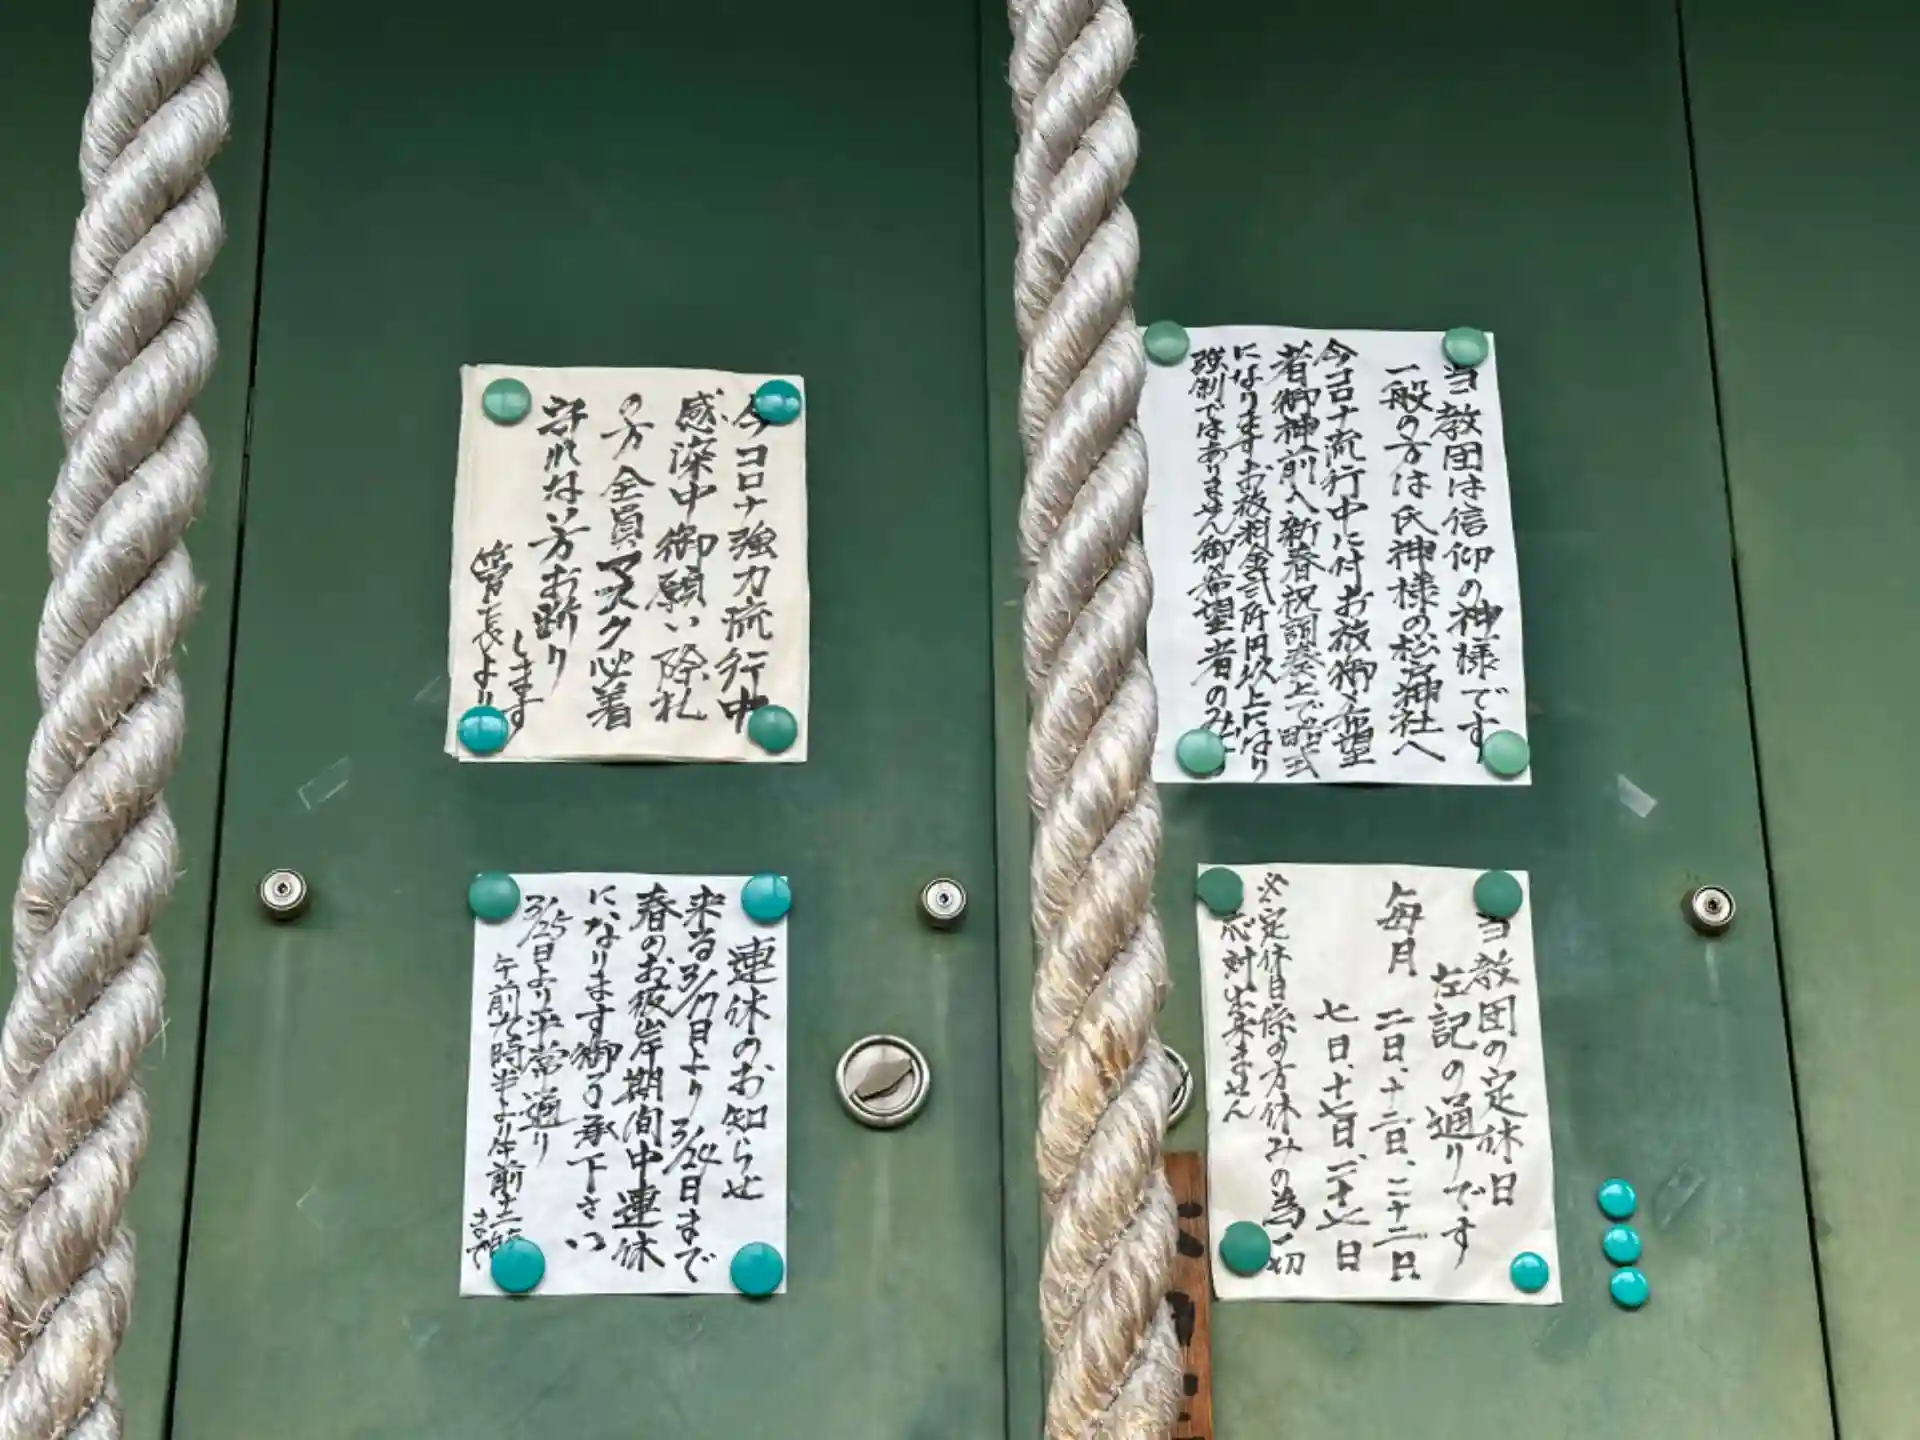 今コロナ強力流行中
感染中御願い除札
の方全員マスク必着
守れな方お断り
します
管長より
当教団は信仰の神様です
一般の方は氏神様の松宮神社へ
今コロナ流行中に付お祓御希望
者御神前へ新春祝詞奏上で
になりますお祓料金弐阡円以上になり
強制ではありません御希望者のみ
連休のお知らせ
来る3/17日より3/24日まで
春のお彼岸期間中連休
になります御了承下さい
3/25日より平常通り
午前九時半より午前十二時
まで
当教団の定休日
左記の通りです
毎月 二日、十二日、二十二日
七日、十七日、二十七日
※定休日係の方休みの為一切
応対出来ません